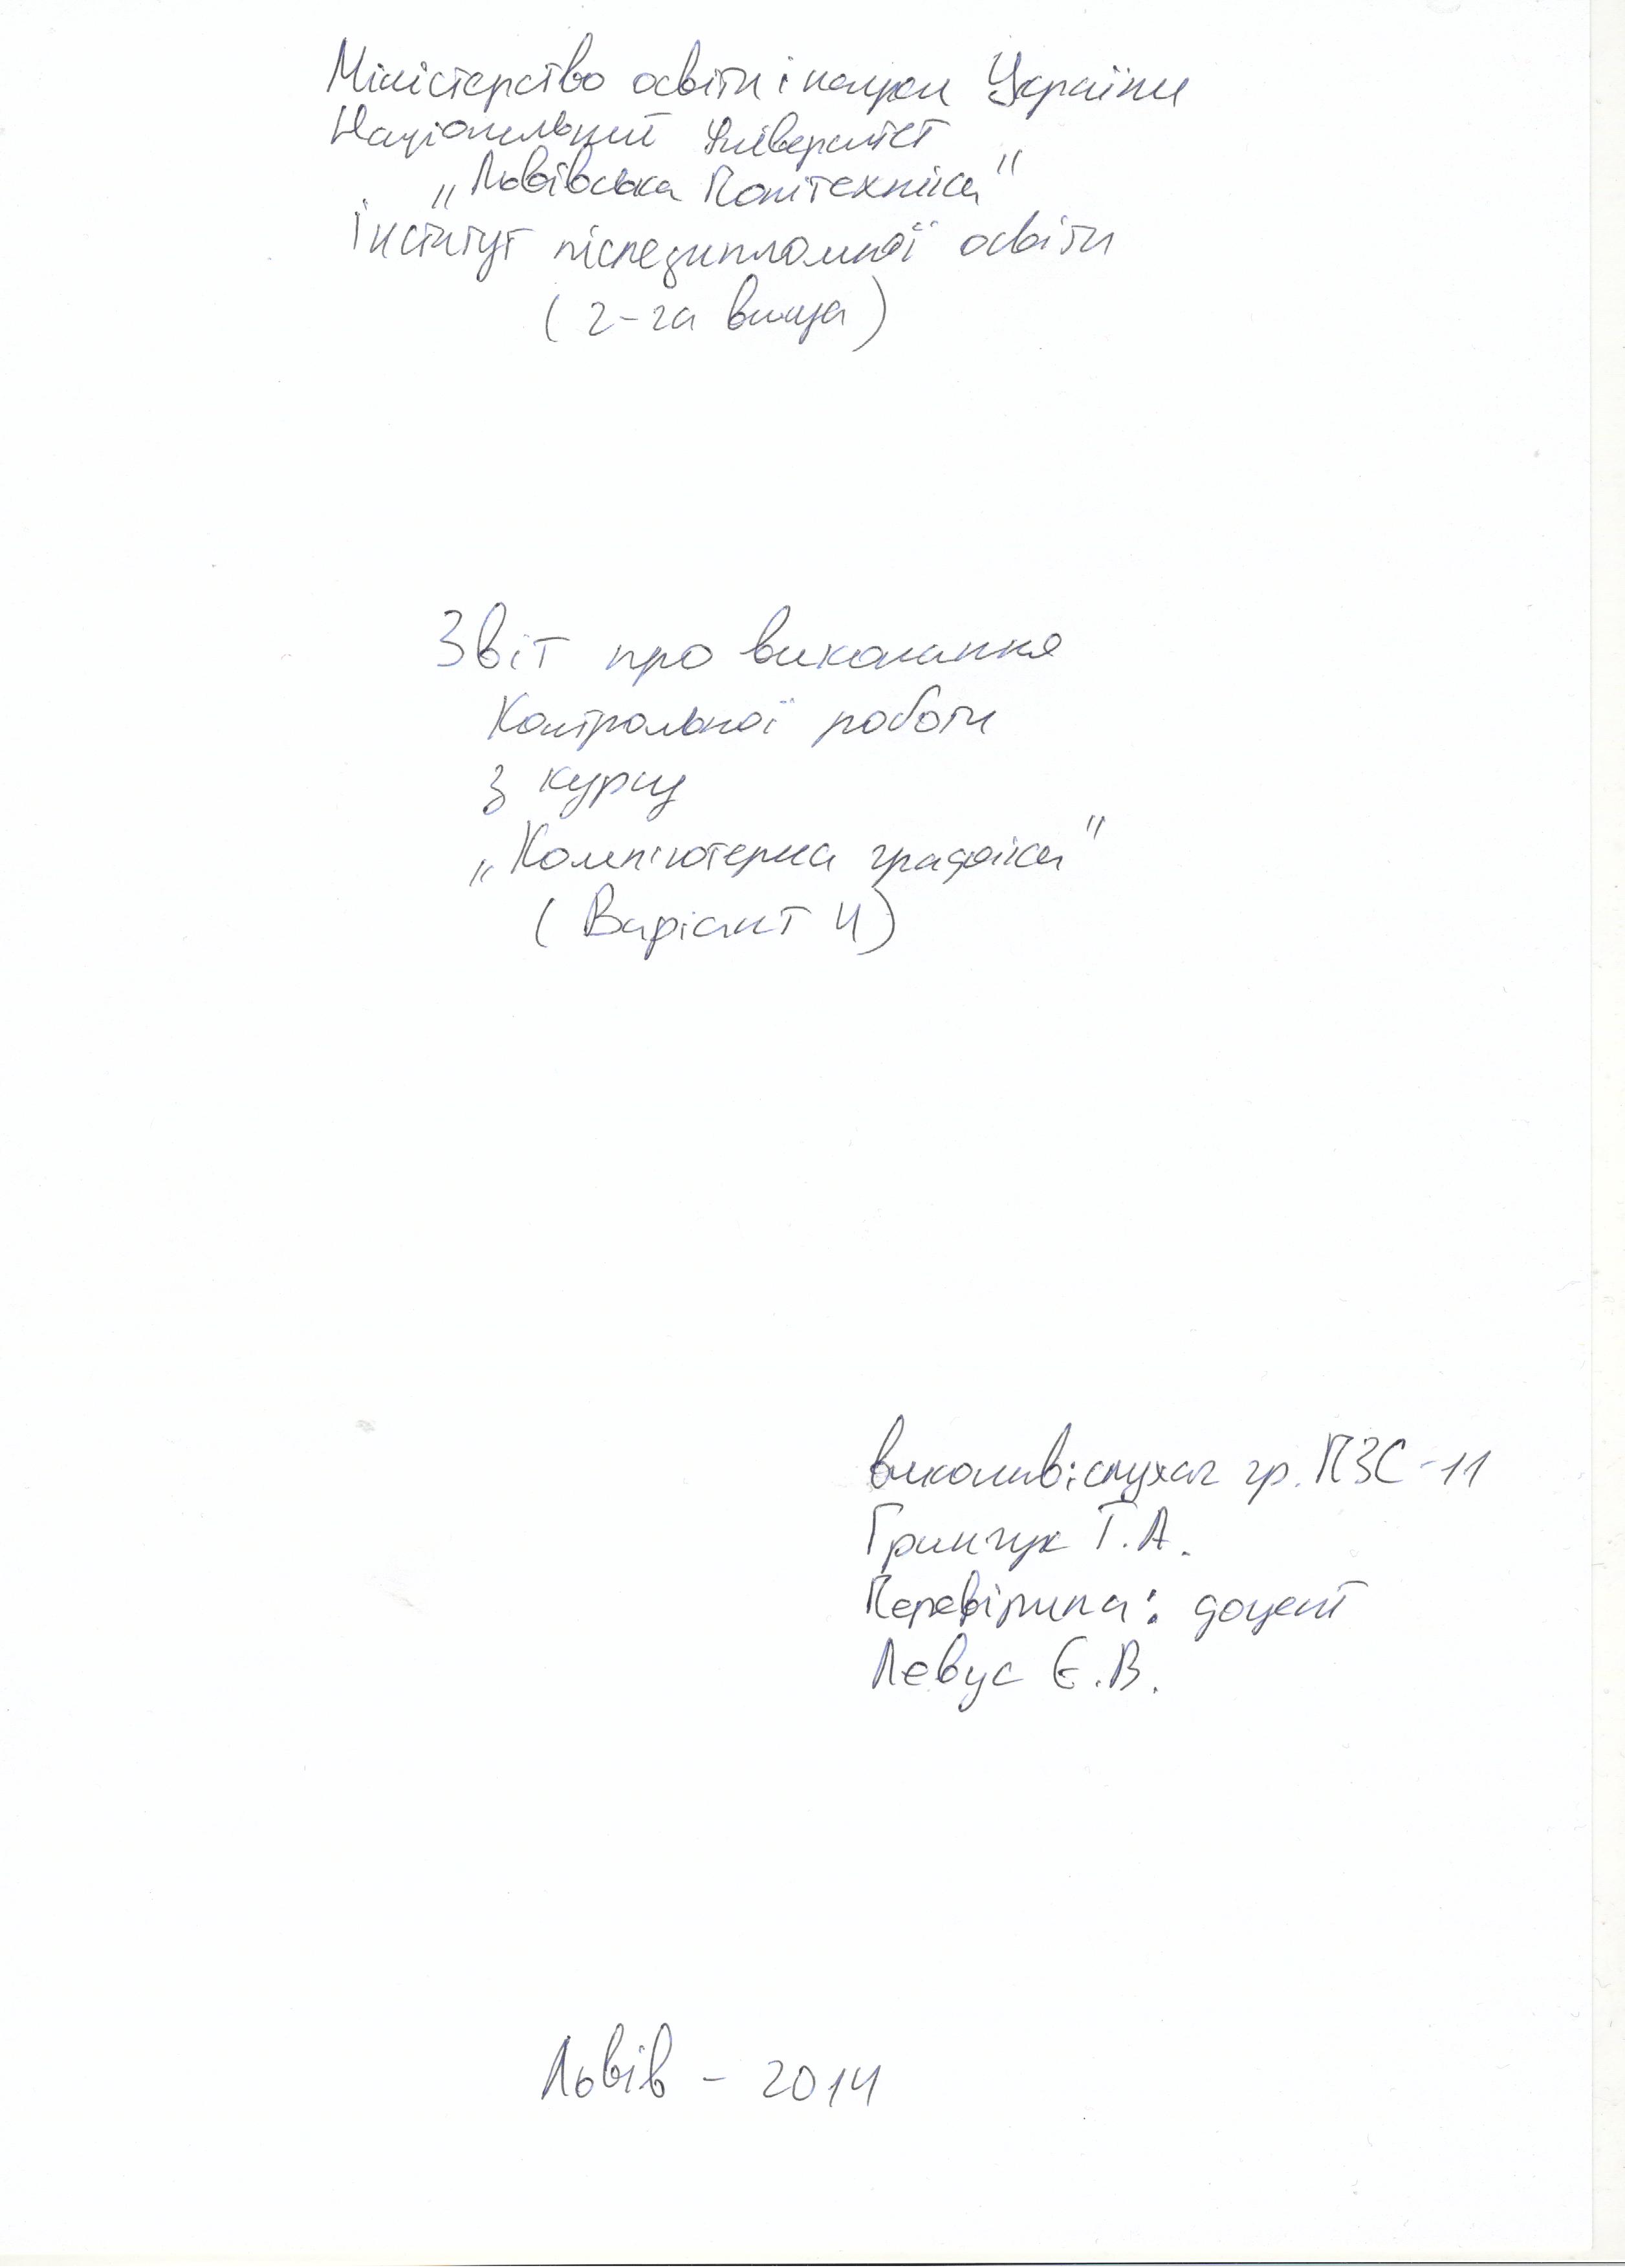 Міністерство освіти і науки України
Національний Університет
„Львівська Політехніка"
Інститут післядипломної освіти
(2-га вища)
Звіт про виконання
Контрольної роботи
з курсу
„Комп'ютерна графіка"
(Варіант 4)
виконав: слухач гр. ПЗС-11
Гринчук Т.А.
Перевірила: доцент
Левус Є.В.
Львів - 2014